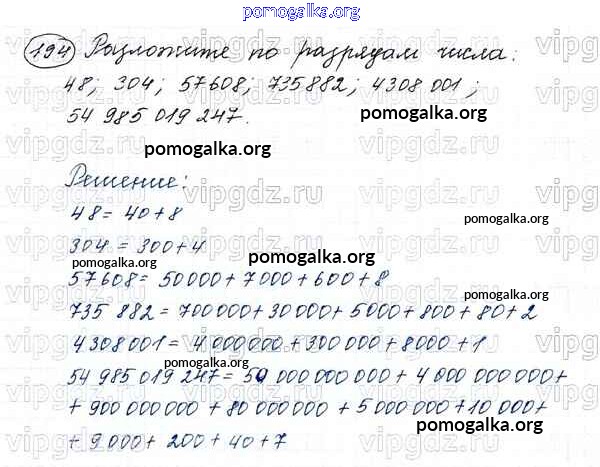 pomogalka.org
194 Разложите по разрядам числа:
48; 304; 57608; 735882; 4308 001;
54 985 019 247.
pomogalka.org
pomogalka.org
Решение:
48 = 40 + 8
pomogalka.org
304 = 300 + 4
pomogalka.org
pomogalka.org
57608 = 50000 + 7000 + 600 + 8
735 882 = 700000 + 30000 + 5000 + 800 + 80 + 2
4308001 = 4000000 + 300 000 + 8000 + 1
pomogalka.org
54 985 019 247 = 50 000 000 000 + 4 000 000 000 +
+ 900 000 000 + 80 000 000 + 5 000 000 + 10 000 +
+ 9 000 + 200 + 40 + 7
pomogalka.org
vipgdz.ru